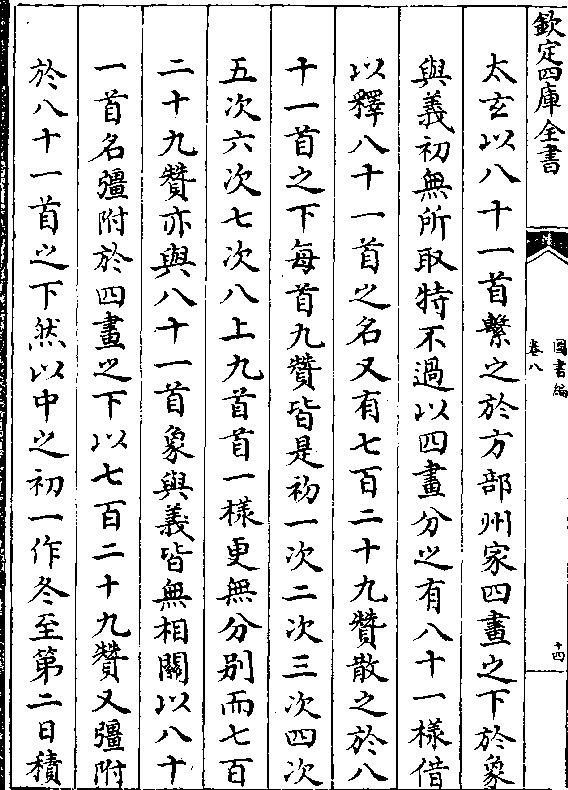 欽定四庫全書
圖書編
卷八
十四
太玄以八十一首繫之於方部州家四畫之下於象
與義初無所取特不過以四畫分之有八十一樣借
以釋八十一首之名又有七百二十九贊散之於八
十一首之下每首九贊皆是初一次二次三次四次
五次六次七次八上九首首一樣更無分别而七百
二十九贊亦與八十一首象與義皆無相關以八十
一首名彊附於四畫之下以七百二十九贊又彊附
於八十一首之下然以中之初一作冬至第二日積